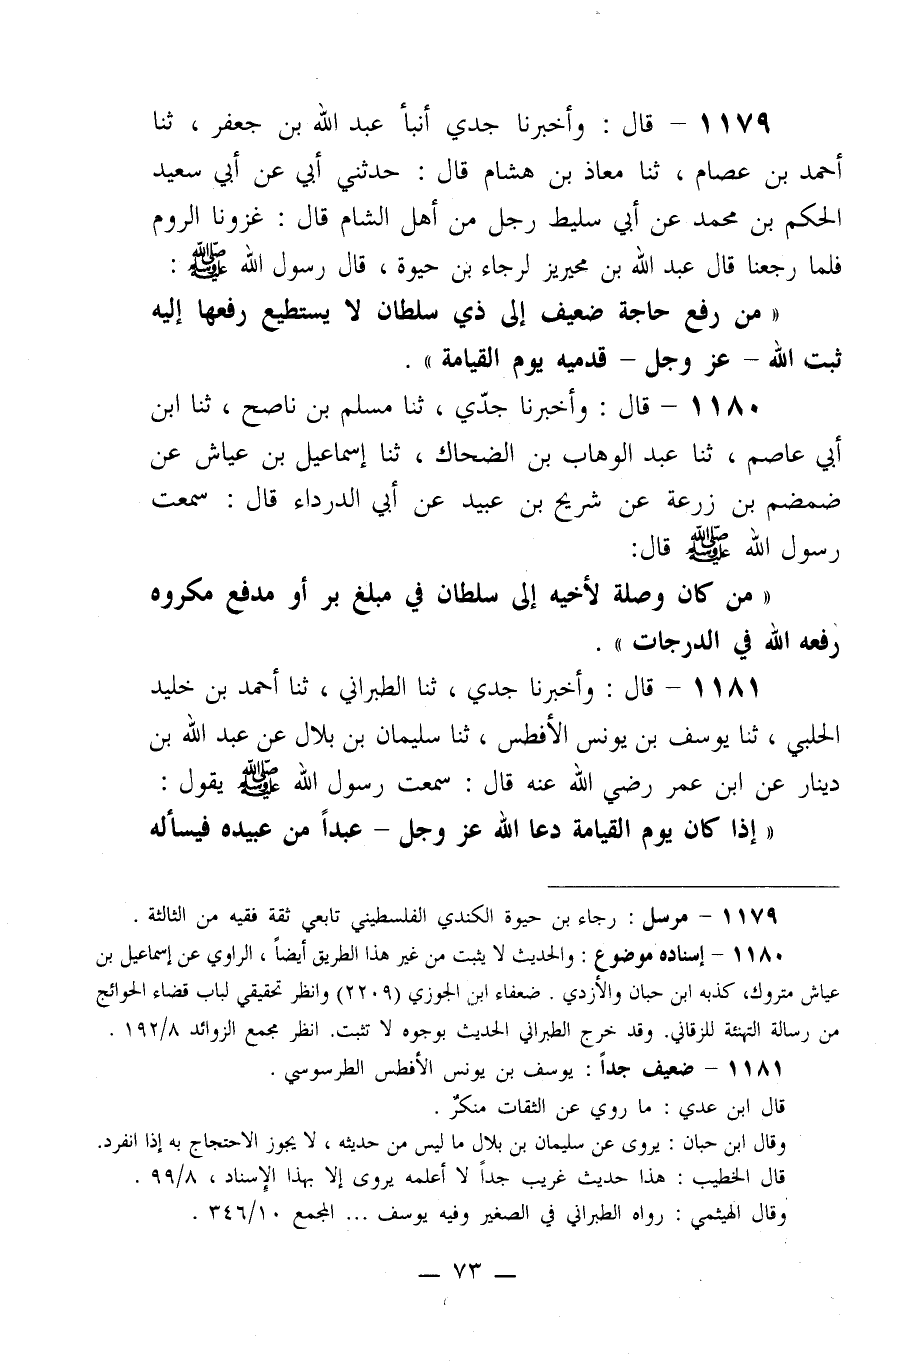 ١١٧٩ – قال : وأخبرنا جدي أنبأ عبد الله بن جعفر ، ثنا
أحمد بن عصام ، ثنا معاذ بن هشام قال : حدثني أبي عن أبي سعيد
الحكم بن محمد عن أبي سليط رجل من أهل الشام قال : غزونا الروم
فلما رجعنا قال عبد الله بن محيريز لرجاء بن حيوة ، قال رسول الله ﷺ :
« من رفع حاجة ضعيف إلى ذي سلطان لا يستطيع رفعها إليه
ثبت الله – عز وجل – قدميه يوم القيامة » .
١١٨٠ – قال : وأخبرنا جدّي ، ثنا مسلم بن ناصح ، ثنا ابن
أبي عاصم ، ثنا عبد الوهاب بن الضحاك ، ثنا إسماعيل بن عياش عن
ضمضم بن زرعة عن شريح بن عبيد عن أبي الدرداء قال : سمعت
رسول الله ﷺ قال:
« من كان وصلة لأخيه إلى سلطان في مبلغ بر أو مدفع مكروه
رفعه الله في الدرجات » .
١١٨١ – قال : وأخبرنا جدي ، ثنا الطبراني ، ثنا أحمد بن خليد
الحلبي ، ثنا يوسف بن يونس الأفطس ، ثنا سليمان بن بلال عن عبد الله بن
دينار عن ابن عمر رضي الله عنه قال : سمعت رسول الله ﷺ يقول :
« إذا كان يوم القيامة دعا الله عز وجل – عبداً من عبيده فيسأله
١١٧٩ – مرسل : رجاء بن حيوة الكندي الفلسطيني تابعي ثقة فقيه من الثالثة .
١١٨٠ – إسناده موضوع : والحديث لا يثبت من غير هذا الطريق أيضاً ، الراوي عن إسماعيل بن
عياش متروك، كذبه ابن حبان والأزدي . ضعفاء ابن الجوزي (٢٢٠٩) وانظر تحقيقي لباب قضاء الحوائج
من رسالة التهنئة للزقاني. وقد خرج الطبراني الحديث بوجوه لا تثبت. انظر مجمع الزوائد ١٩٢/٨ .
١١٨١ – ضعيف جداً : يوسف بن يونس الأفطس الطرسوسي .
قال ابن عدي : ما روي عن الثقات منكرٌ .
وقال ابن حبان : يروى عن سليمان بن بلال ما ليس من حديثه ، لا يجوز الاحتجاج به إذا انفرد.
قال الخطيب : هذا حديث غريب جداً لا أعلمه يروى إلا بهذا الإسناد ، ٩٩/٨ .
وقال الهيثمي : رواه الطبراني في الصغير وفيه يوسف ... المجمع ٣٤٦/١٠ .
– ٧٣ –